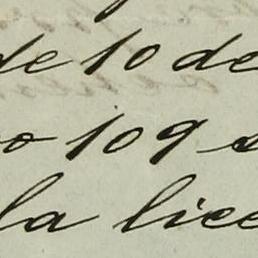 de 10 de
o 109 s
la lice